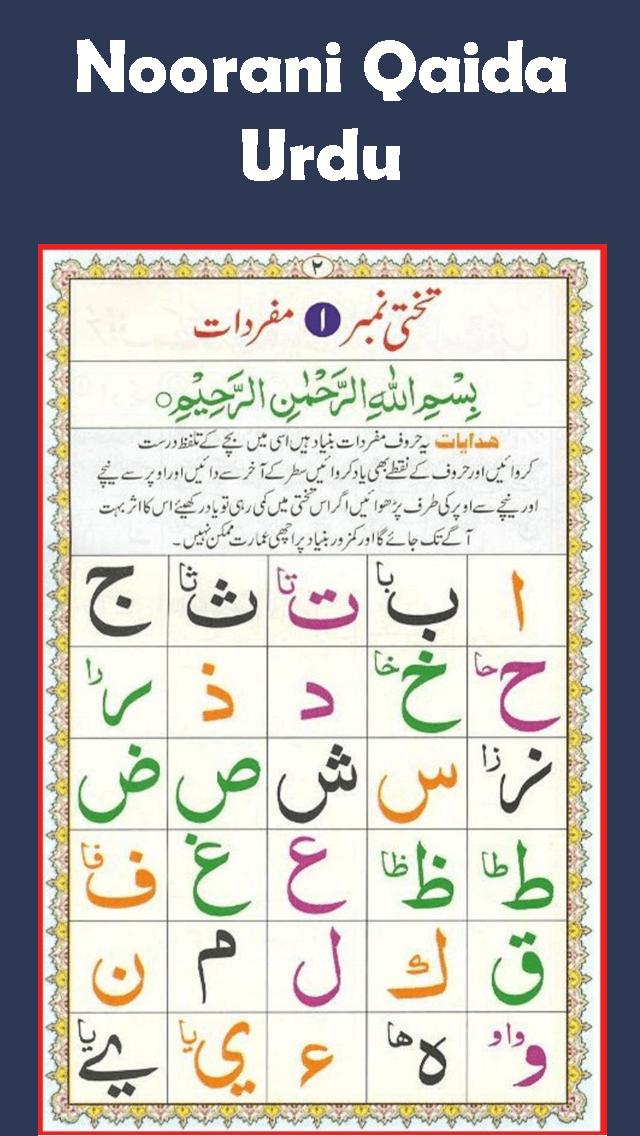 Noorani Qaida
Urdu
٢
تختی نمبر ۱ مفردات
بِسْمِ اللّٰهِ الرَّحْمٰنِ الرَّحِيْمِ ○
هدايات یہ حروف مفردات بنیاد ہیں اسی میں بچے کے تلفظ درست
کروائیں اور حروف کے نقطے بھی یاد کروائیں سطر کے آخر سے دائیں اور اوپر سے نیچے
اور نیچے سے اوپر کی طرف پڑھوائیں اگر اس تختی میں کمی رہی تو یاد رکھیئے اس کا اثر بہت
آگے تک جائے گا اور کمزور بنیاد پر اچھی عمارت ممکن نہیں۔
ا ب با ت تا ث ثا ج
ح حا خ خا د ذ ر را
ز زا س ش ص ض
ط طا ظ ظا ع غ ف فا
ق ك ل م ن
و واو ه ها ء ي يا ے يا